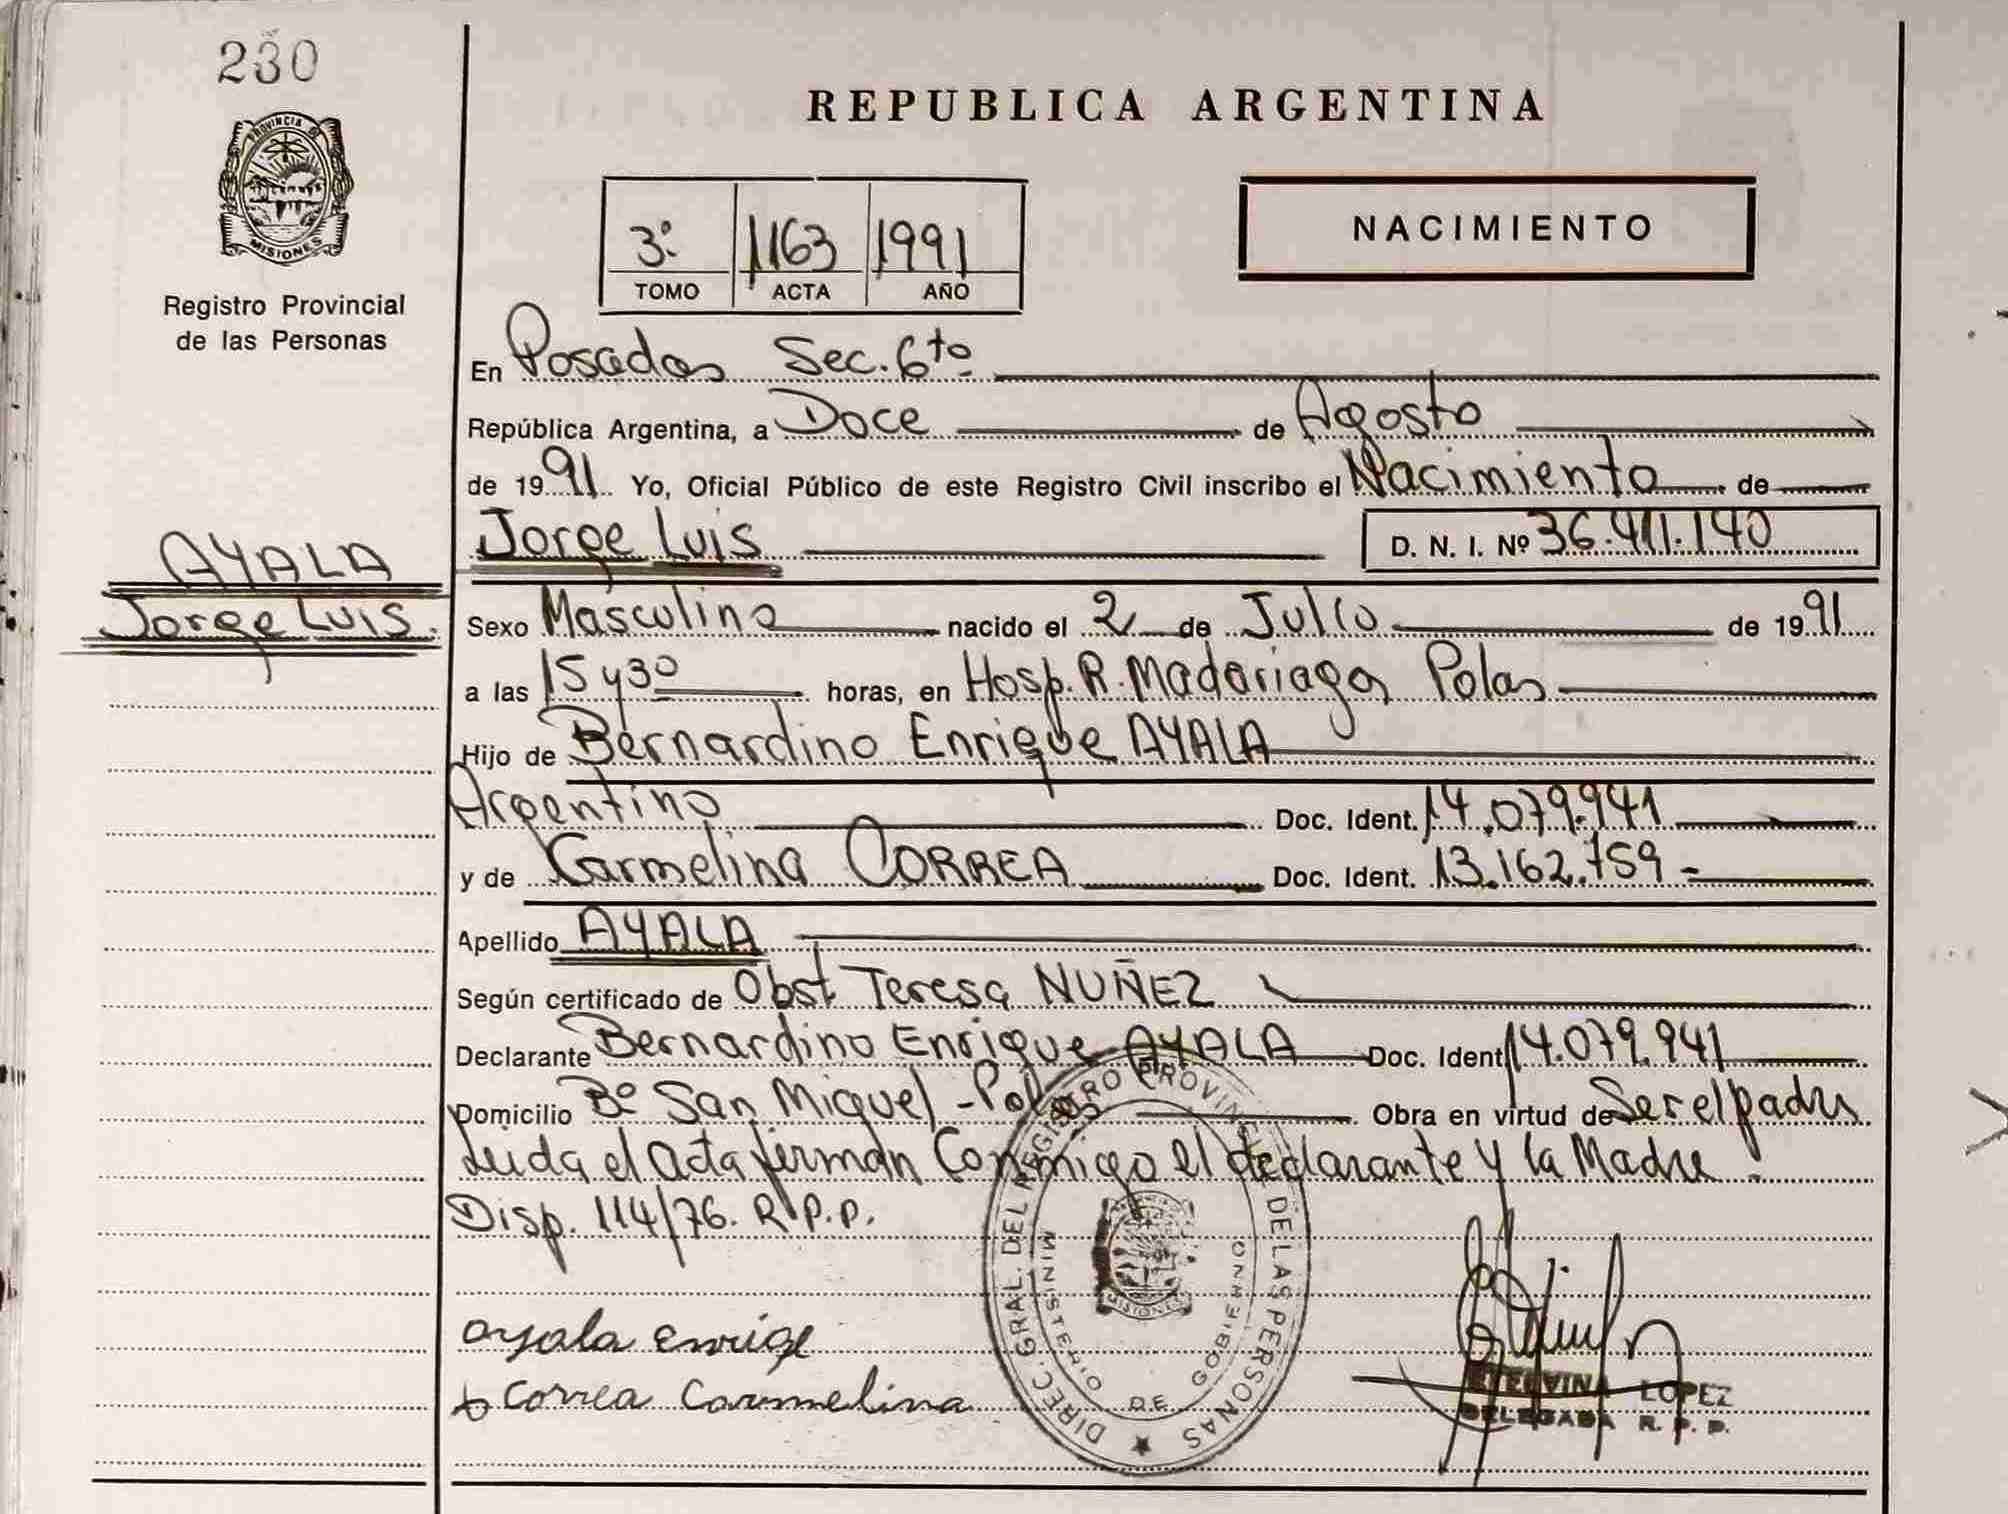 230
PROVINCIA DE
MISIONES
Registro Provincial
de las Personas
REPUBLICA ARGENTINA
3º 1163 1991
TOMO ACTA AÑO
NACIMIENTO
En Posadas Sec. 6ta
República Argentina, a Doce de Agosto
de 1991 Yo, Oficial Público de este Registro Civil inscribo el Nacimiento de
Jorge Luis D. N. I. Nº 36.411.140
AYALA
Jorge Luis.
Sexo Masculino nacido el 2 de Julio de 1991
a las 15 y 30 horas, en Hosp. R. Madariaga Pdas
Hijo de Bernardino Enrique AYALA
Argentino Doc. Ident. 14.079.941
y de Carmelina CORREA Doc. Ident. 13.162.759
Apellido AYALA
Según certificado de Obst Teresa NUÑEZ
Declarante Bernardino Enrique AYALA Doc. Ident 14.079.941
Domicilio Bº San Miguel - Pdas Obra en virtud de Ser el padre
Leida el acta firman Conmigo el declarante y la Madre.
Disp. 114/76. R.P.P.
DIREC. GRAL. DEL REGISTRO PROVINC. DE LAS PERSONAS
MINISTERIO DE GOBIERNO
MISIONES
ayala enrige
Correa Carmelina
ETELVINA LOPEZ
DELEGADA R. P. P.